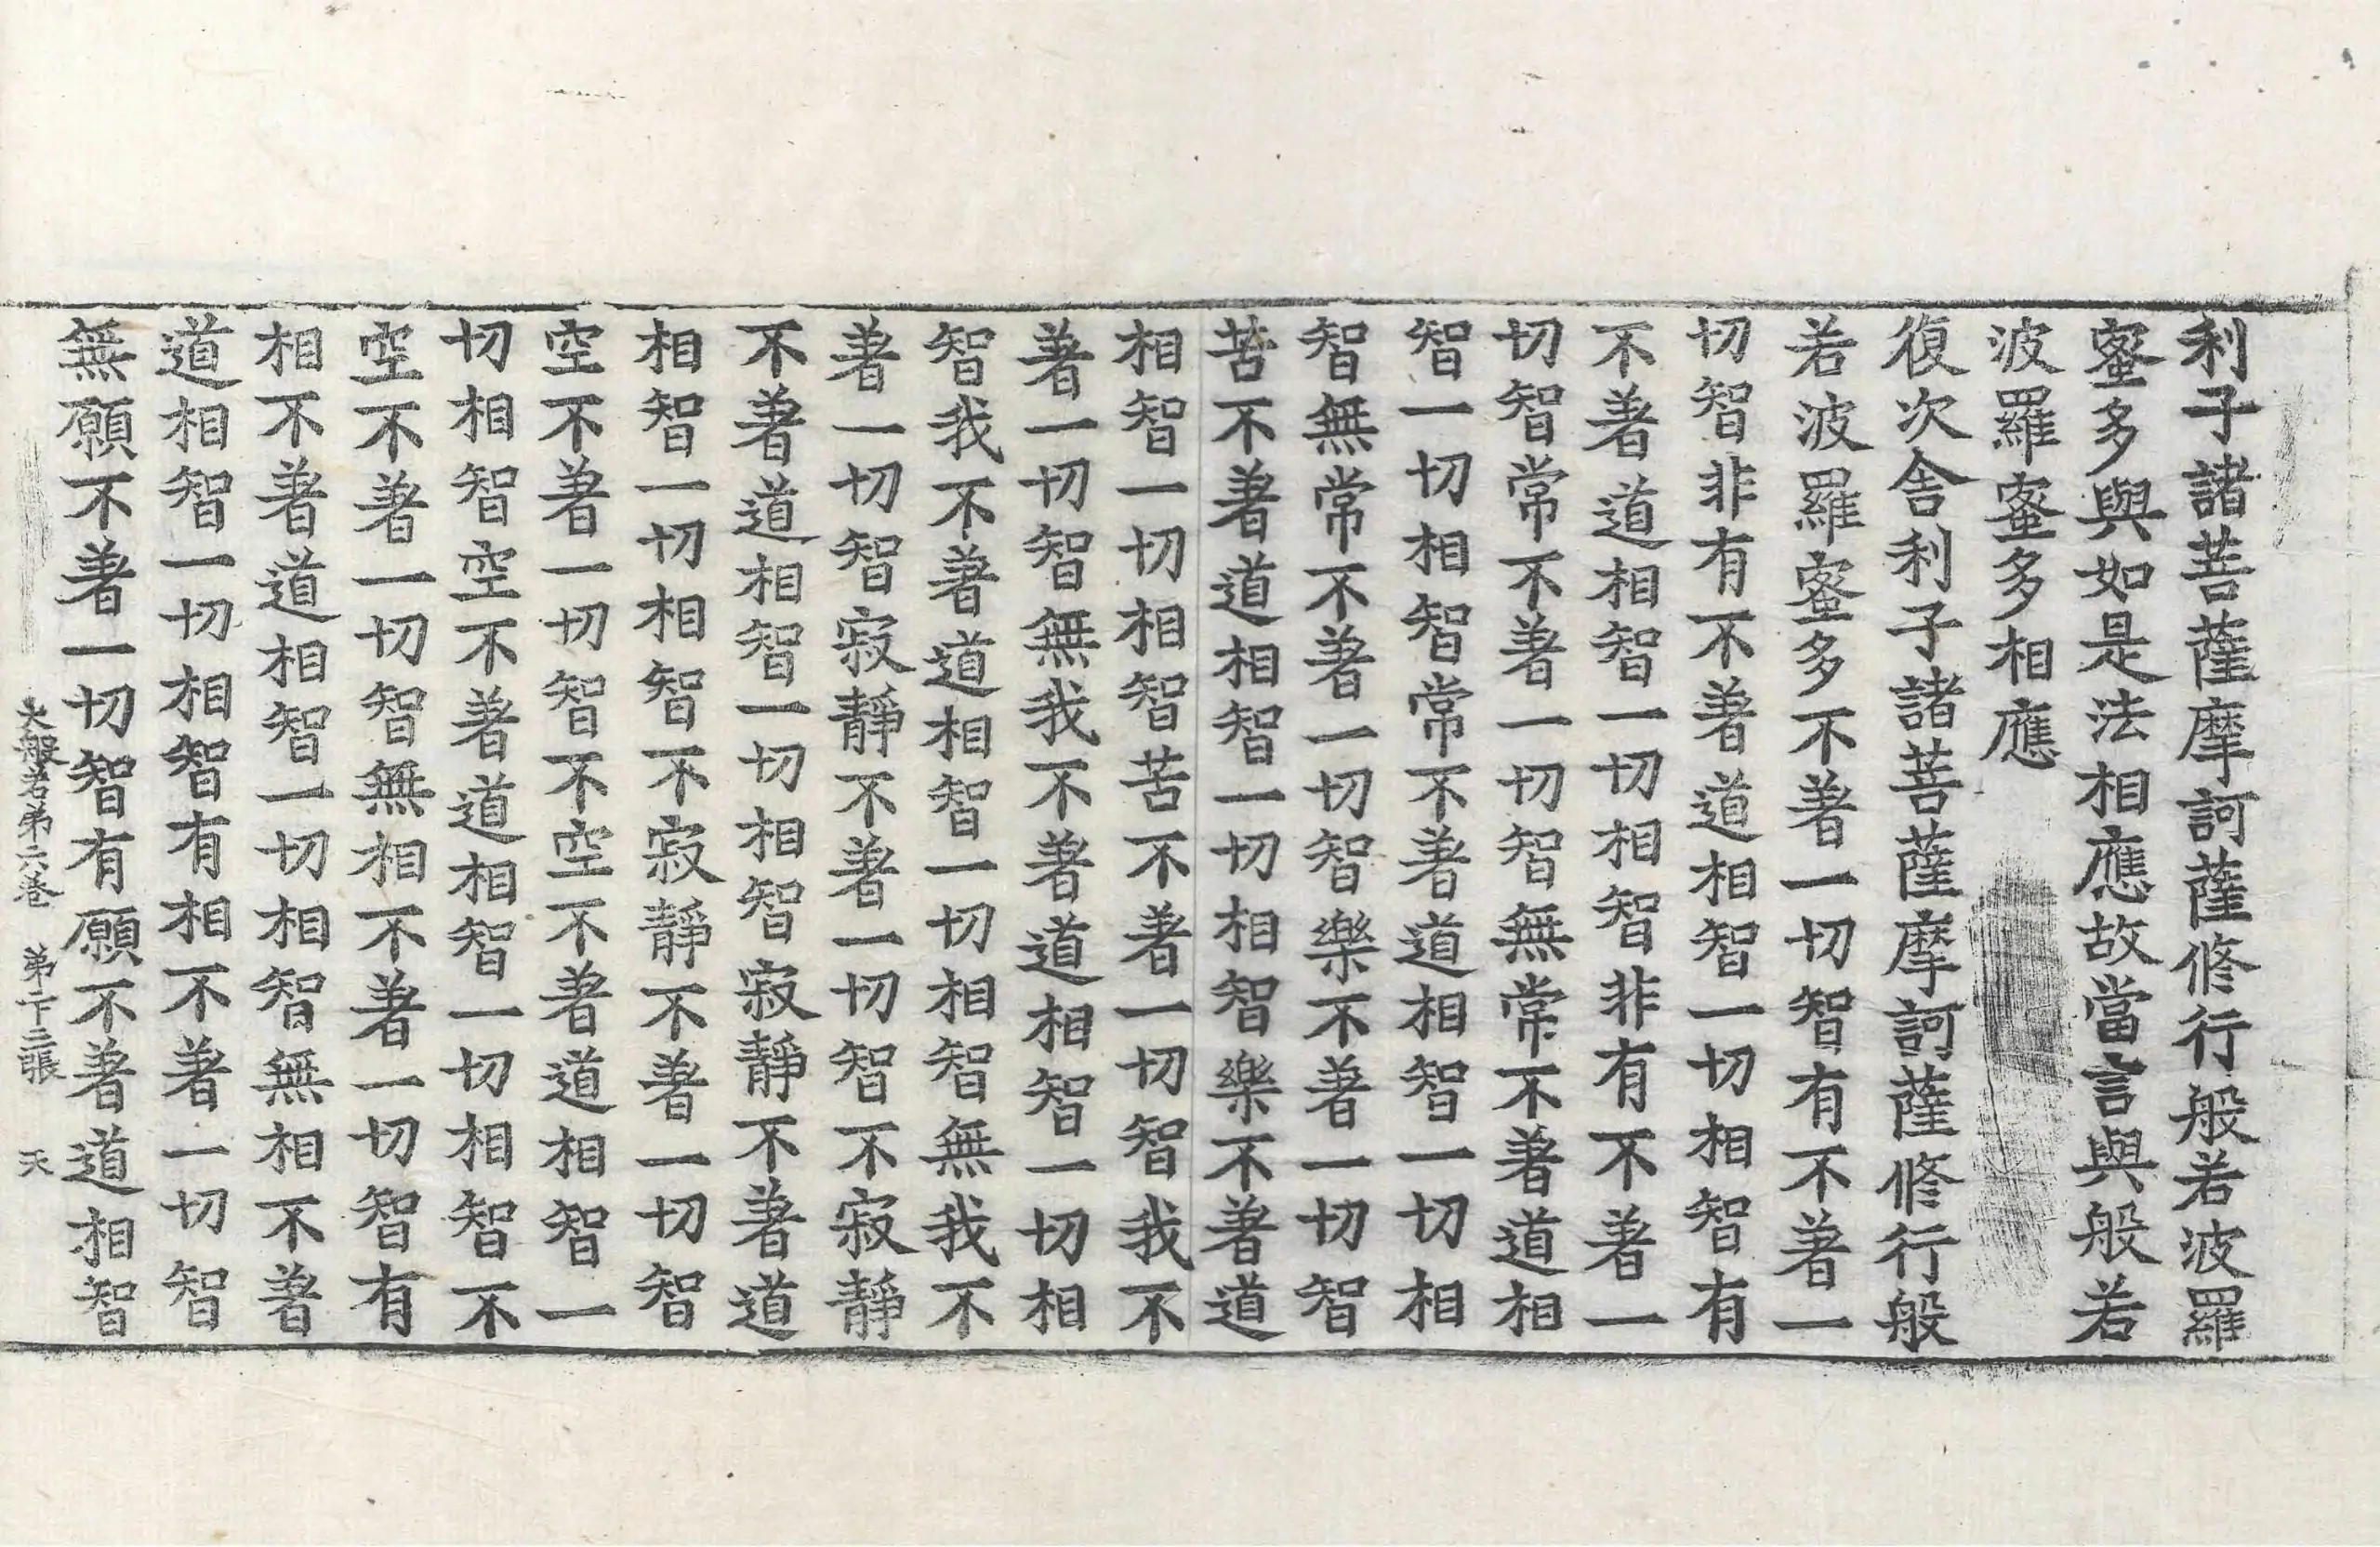 利子諸菩薩摩訶薩修行般若波羅
蜜多與如是法相應故當言與般若
波羅蜜多相應
復次舎利子諸菩薩摩訶薩修行般
若波羅蜜多不著一切智有不著一
切智非有不著道相智一切相智有
不著道相智一切相智非有不著一
切智常不著一切智無常不著道相
智一切相智常不著道相智一切相
智無常不著一切智樂不著一切智
苦不著道相智一切相智樂不著道
相智一切相智苦不著一切智我不
著一切智無我不著道相智一切相
智我不著道相智一切相智無我不
著一切智寂靜不著一切智不寂靜
不著道相智一切相智寂靜不著道
相智一切相智不寂靜不著一切智
空不著一切智不空不著道相智一
切相智空不著道相智一切相智不
空不著一切智無相不著一切智有
相不著道相智一切相智無相不著
道相智一切相智有相不著一切智
無願不著一切智有願不著道相智
大般若第六卷 第十三張 天